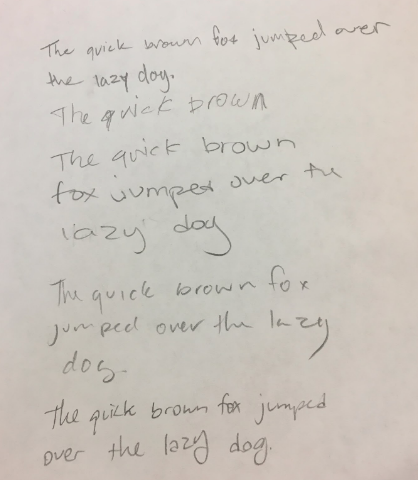 The quick brown fox jumped over
the lazy dog.
The quick brown
The quick brown
fox jumped over the
lazy dog
The quick brown fox
jumped over the lazy
dog.
The quick brown fox jumped
over the lazy dog.